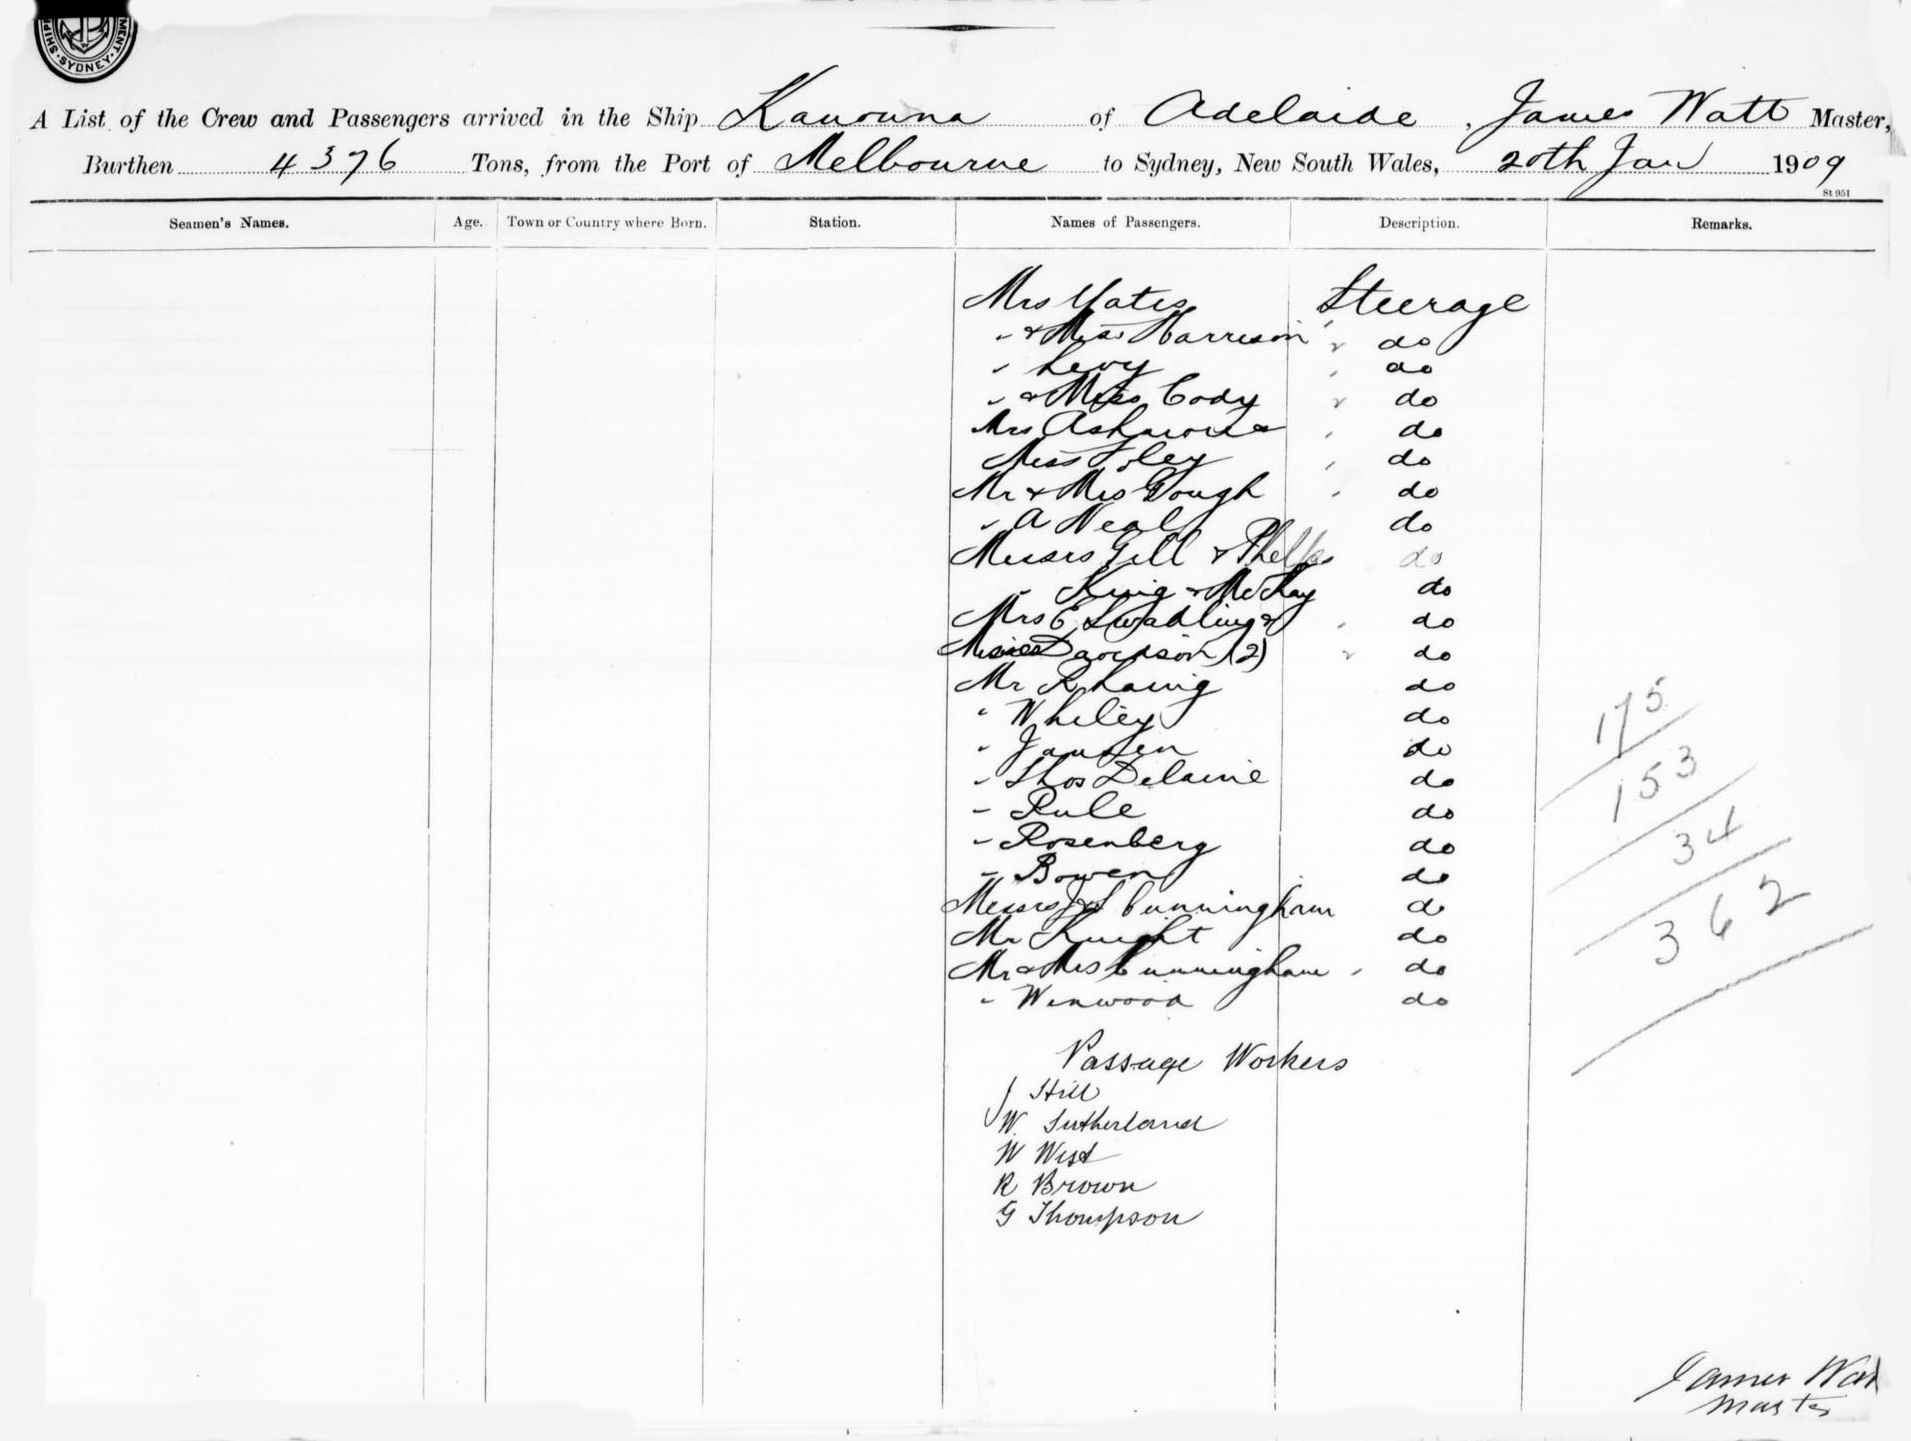 MENT · SYDNEY · SHIP
A List of the Crew and Passengers arrived in the Ship Kanowna of Adelaide, James Watt Master,
Burthen 4376 Tons, from the Port of Melbourne to Sydney, New South Wales, 20th Jan 1909
St 951
Seamen's Names. Age. Town or Country where Born. Station. Names of Passengers. Description. Remarks.
Mrs Yates Steerage
" & Miss Harrison do
" Levy do
" & Miss Cody do
Mrs do
Miss Foley do
Mr & Mrs Gough do
" A Neal do
Messrs Gill & Phelps do
" King & McKay do
Mrs E Swadling do
Misses Davidson (2) do
Mr R Laing do
" Whiley do
" Jansen do
" Thos Delaine do
" Rule do
" Rosenberg do
" Bowen do
Messrs J & Cunningham do
Mr Knight do
Mr & Mrs Cunningham do
" Winwood do
175
153
34
362
Passage Workers
J Hill
W. Sutherland
W West
R Brown
G Thompson
James Watt
Master